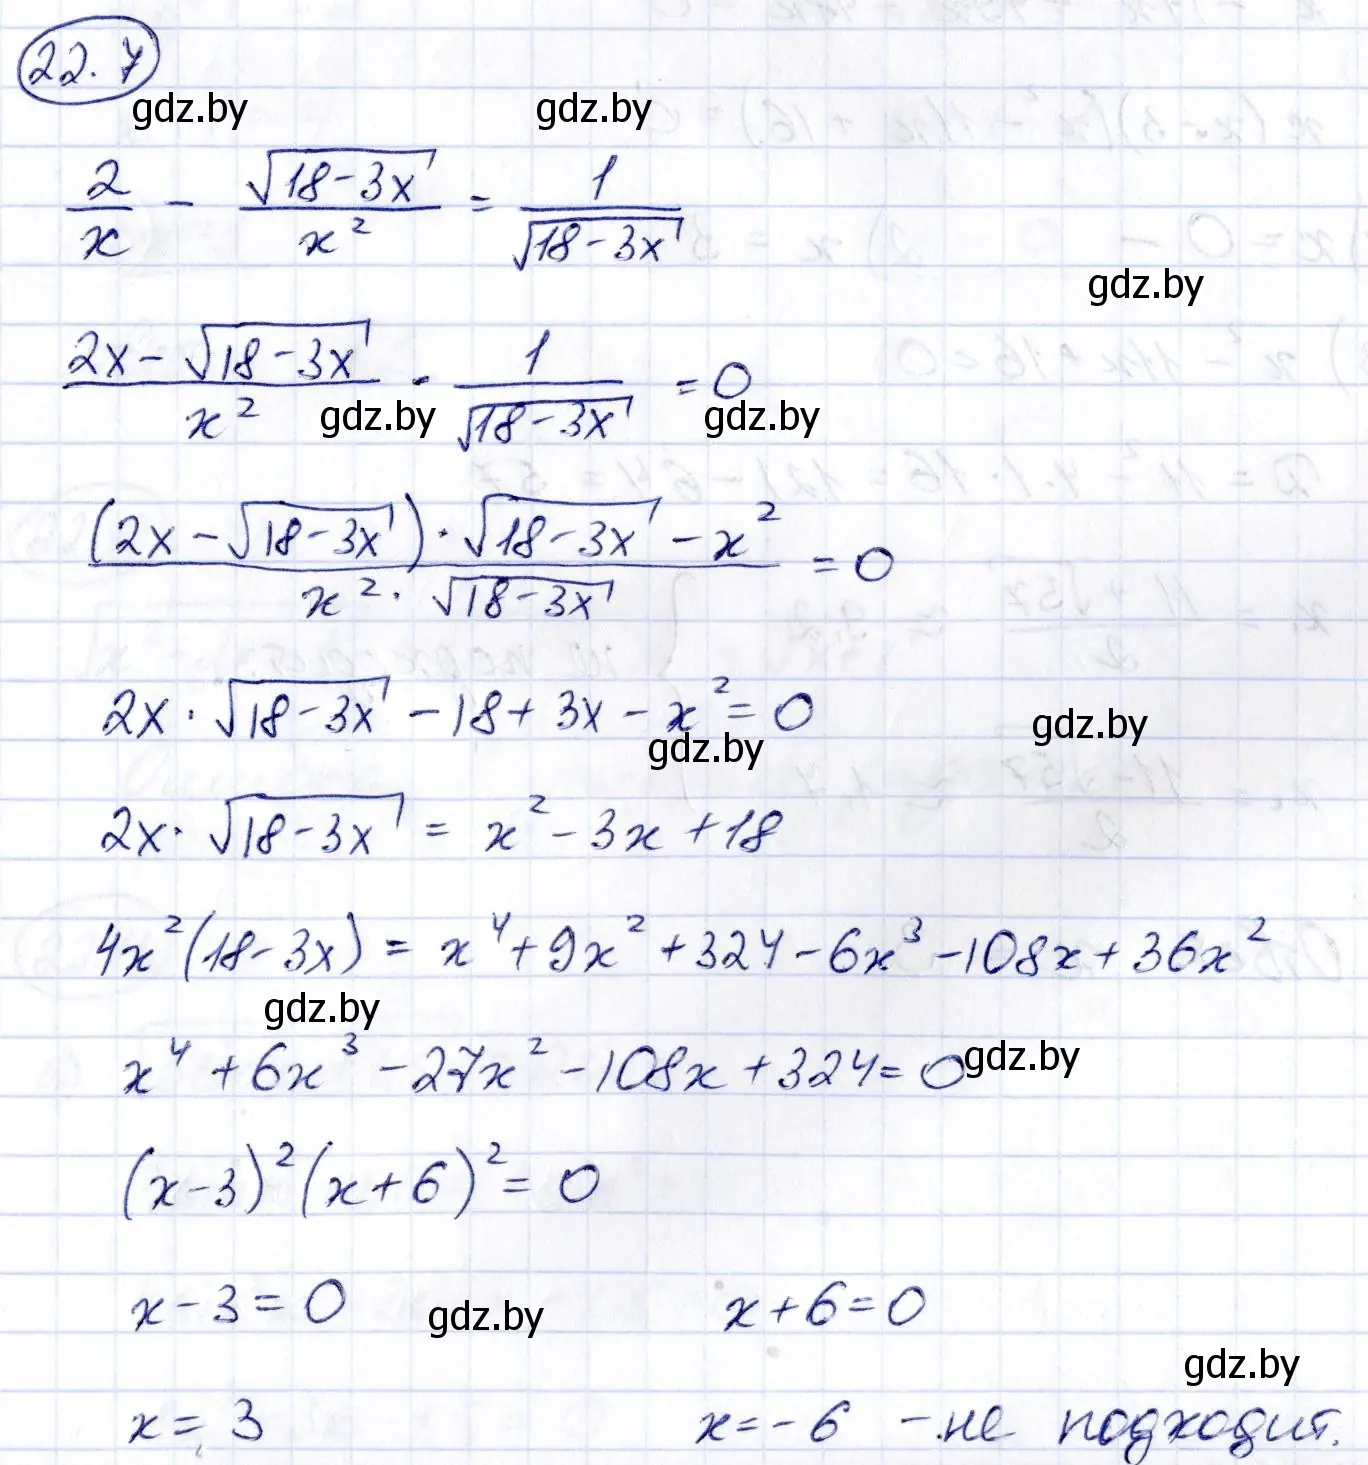 22.7
gdz.by gdz.by
2/x - √(18-3x)/x² = 1/√(18-3x)
gdz.by
(2x-√(18-3x))/x² - 1/√(18-3x) = 0
gdz.by gdz.by
((2x-√(18-3x))·√(18-3x) - x²)/(x²·√(18-3x)) = 0
2x·√(18-3x) - 18 + 3x - x² = 0
gdz.by gdz.by
2x·√(18-3x) = x² - 3x + 18
4x²(18-3x) = x⁴ + 9x² + 324 - 6x³ - 108x + 36x²
gdz.by
x⁴ + 6x³ - 27x² - 108x + 324 = 0
gdz.by
(x-3)²(x+6)² = 0
x-3=0 x+6=0
gdz.by
gdz.by
x=3 x=-6 - не подходит.